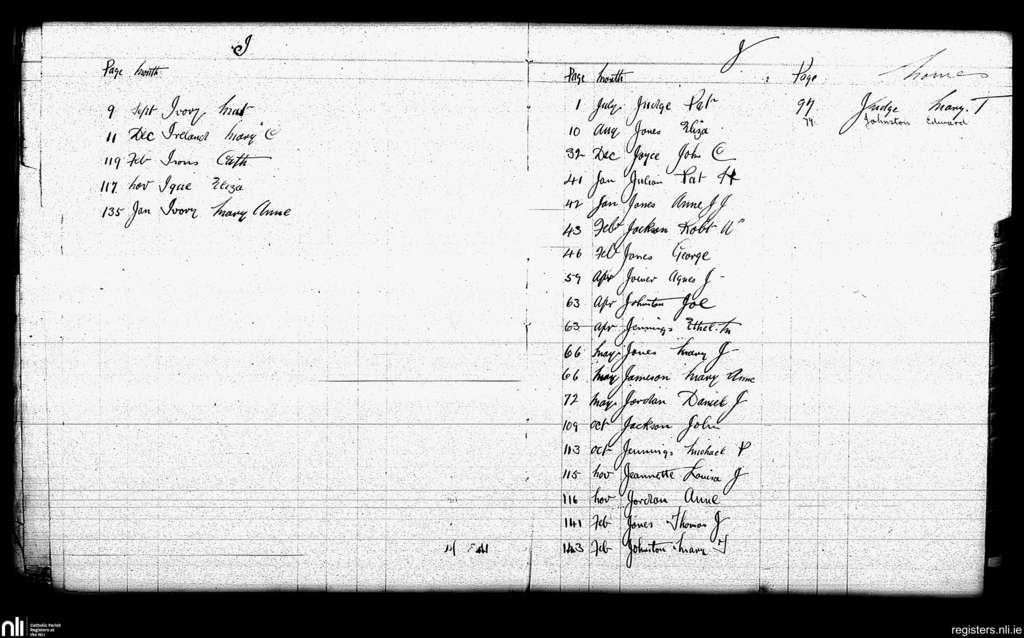 I
Page Month
9 Sept Ivory Mat
11 Dec Ireland Mary C
119 Feb Irons Cath
117 Nov Igue Eliza
135 Jan Ivory Mary Anne
J
Page Month
1 July Judge Pat
10 Aug Jones Eliza
32 Dec Joyce John C
41 Jan Julian Pat H
42 Jan Jones Anne J J
43 Feb Jackson Robt W
46 Feb Jones George
59 Apr Joiner Agnes J
63 Apr Johnston Joe
63 Apr Jennings Ethel M
66 May Jones Mary J
66 May Jameson Mary Anne
72 May Jordan Daniel J
109 Oct Jackson John
113 Oct Jennings Michael P
115 Nov Jeannette Louisa J
116 Nov Jordan Anne
141 Feb Jones Thomas J
143 Feb Johnston Mary T
Page
97 Judge Mary T
79 Johnston Edward
nli
Catholic Parish
Registers at
the NLI
registers.nli.ie